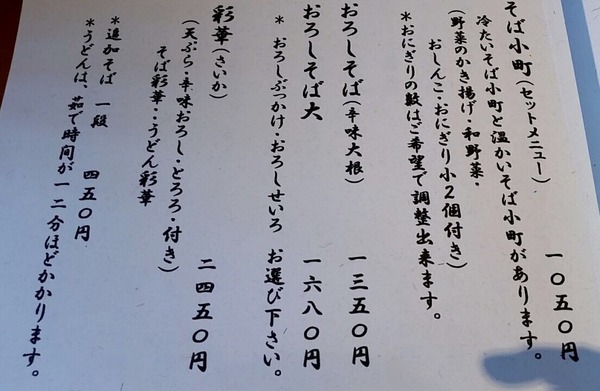 そば小町(セットメニュー) 一〇五〇円
冷たいそば小町と温かいそば小町があります。
(野菜のかき揚げ・和野菜・
おしんこ・おにぎり小2個付き)
*おにぎりの数はご希望で調整出来ます。
おろしそば(辛味大根) 一三五〇円
おろしそば大 一六八〇円
* おろしぶっかけ・おろしせいろ お選び下さい。
彩華(さいか) 二四五〇円
(天ぷら・辛味おろし・とろろ・付き)
そば彩華・・うどん彩華
*追加そば 一段 四五〇円
*うどんは、茹で時間が一二分ほどかかります。